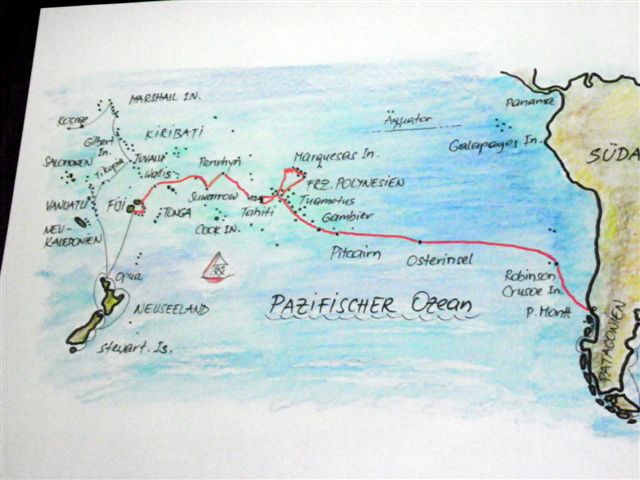 MARSHALL IN.
Kosrae
Gilbert
In.
KIRIBATI
SALOMONEN
Tikopia
TUVALU
Wallis
Penrhyn
Suwarrow
VANUATU
FIJI
TONGA
COOK IN.
NEU-
KALEDONIEN
Marquesas In.
FRZ. POLYNESIEN
Tuamotus
Tahiti
Gambier
Pitcairn
Osterinsel
Äquator
Panama
Galapagos In.
SÜDA
Robinson
Crusoe In.
P. Montt
PATAGONIEN
Opua
NEUSEELAND
Stewart. Is.
PAZIFISCHER OZEAN